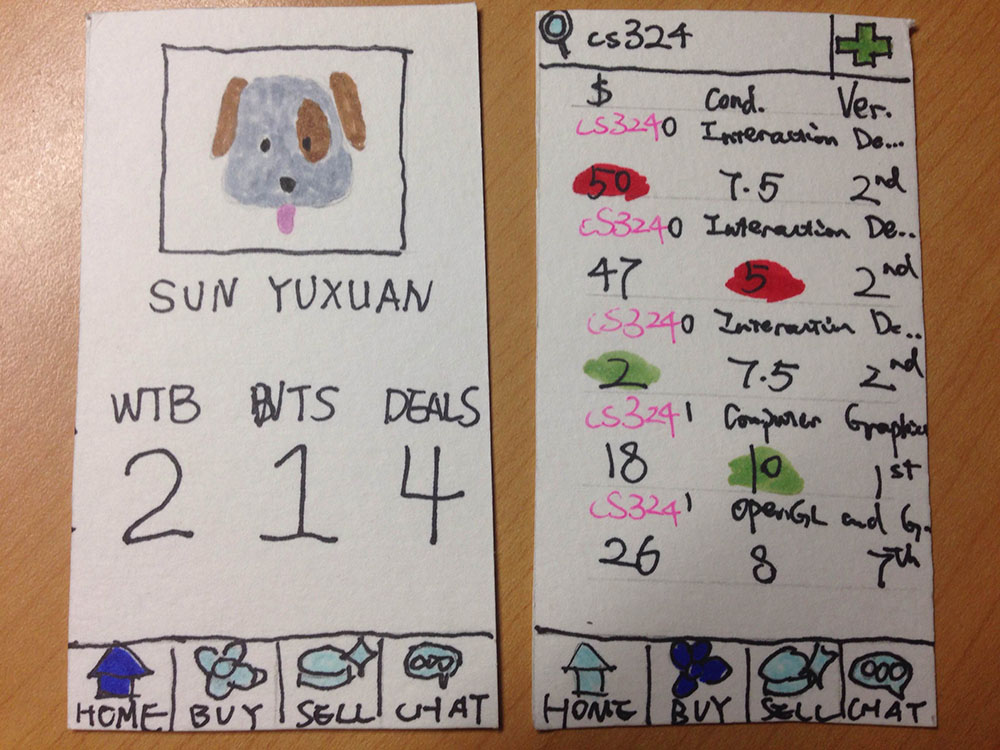 SUN YUXUAN
WTB WTS DEALS
2 1 4
HOME BUY SELL CHAT
cs324
$ Cond. Ver.
CS3240 Interaction De...
50 7.5 2nd
CS3240 Interaction De..
47 5 2nd
CS3240 Interaction De..
2 7.5 2nd
CS3241 Computer Graphics
18 10 1st
CS3241 OpenGL and G.
26 8 7th
HOME BUY SELL CHAT